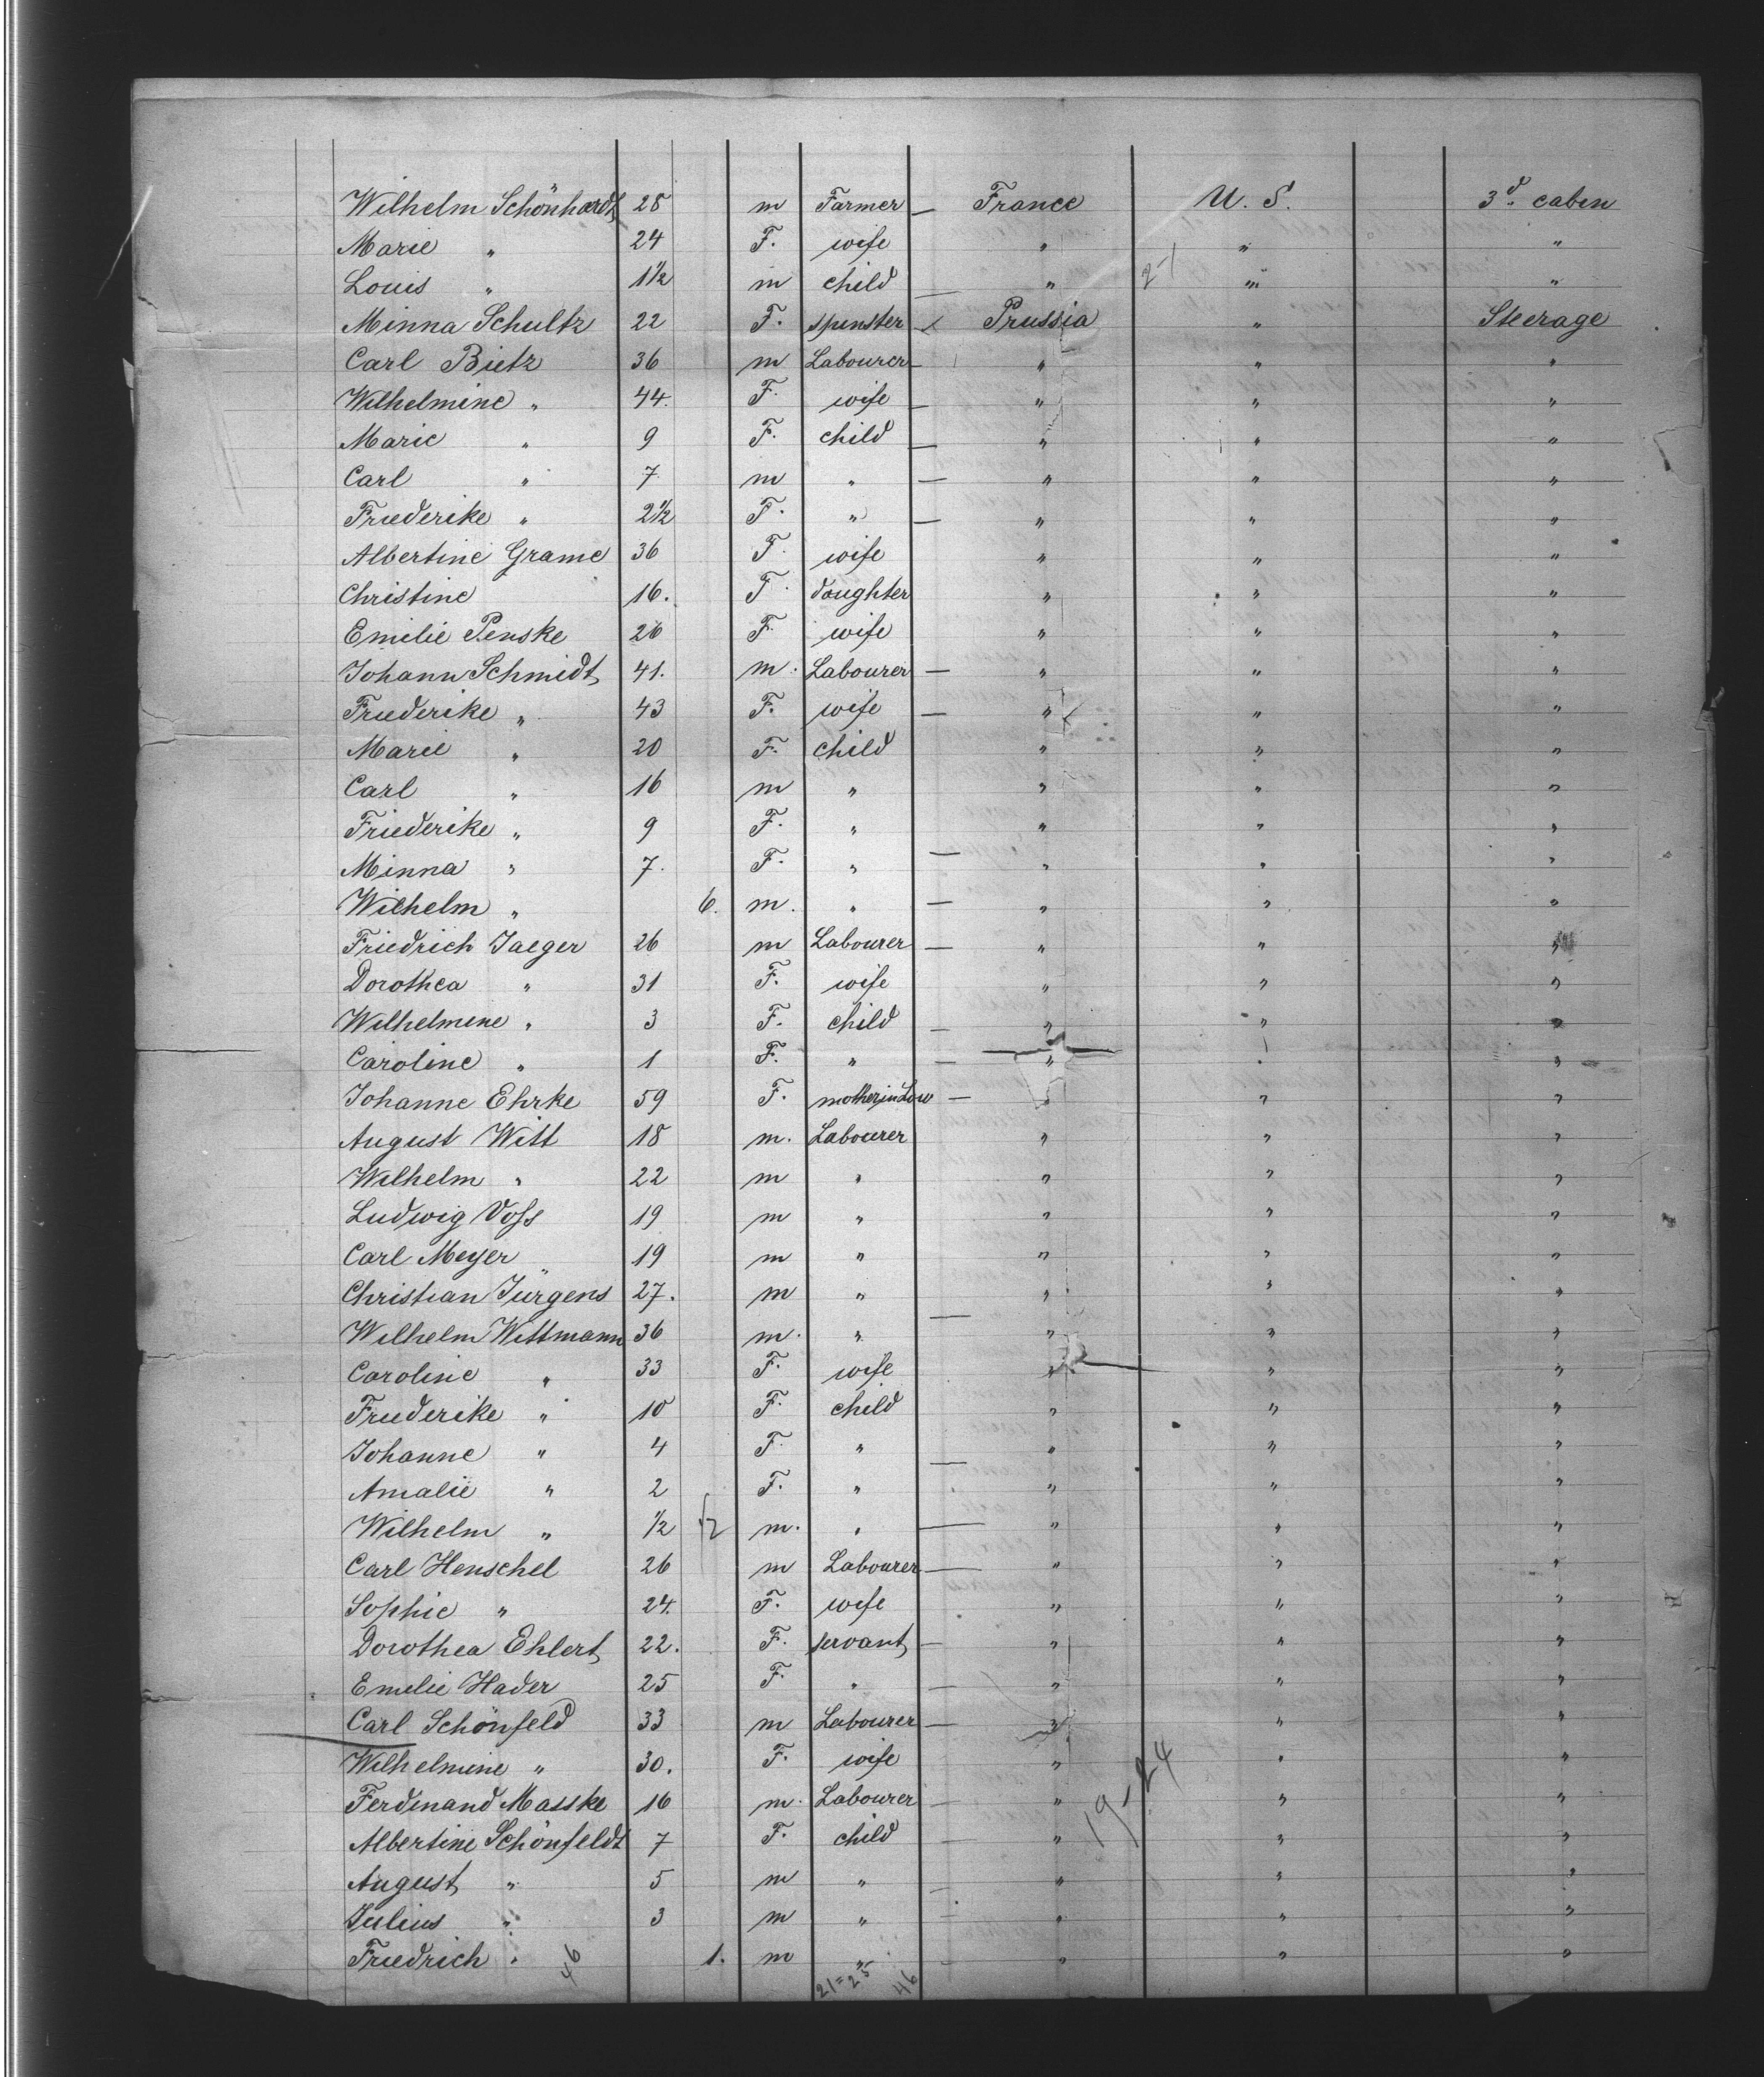 Wilhelm Schönhardt 28 m Farmer — France U. S. 3d. caben
Marie " 24 F. wife " " "
Louis " 1 1/2 m child — " 2-1 " "
Minna Schultz 22 F. spenster x Prussia " Steerage
Carl Bietz 36 m Labourer — " " "
Wilhelmine " 44. F. wife — " " "
Marie " 9 F. child — " " "
Carl " 7 m " — " " "
Friederike " 2 1/2 F. " — " " "
Albertine Grame 36 F. wife " " "
Christine 16. F. doughter " " "
Emilie Penske 26 F. wife " " "
Johann Schmidt 41. m. Labourer — " " "
Friederike " 43 F. wife — " " "
Marie " 20 F. child " " "
Carl " 16 m " " " "
Friederike " 9 F. " " " "
Minna " 7. F. " — " " "
Wilhelm " 6. m. " — " " "
Friedrich Jaeger 26 m Labourer — " " "
Dorothea " 31 F. wife " " "
Wilhelmine " 3 F. child — " " "
Caroline " 1 F. " — " " "
Johanne Ehrke 59 F. motherinLow — " " "
August Witt 18 m. Labourer " " "
Wilhelm " 22 m " " " "
Ludwig Voss 19 m " " " "
Carl Meyer 19 m " " " "
Christian Jürgens 27. m " " " "
Wilhelm Wittmann 36 m. " — " " "
Caroline " 33 F. wife " " "
Friederike " 10 F. child " " "
Johanne " 4 F. " " " "
Amalie " 2 F. " — " " "
Wilhelm " 1/2 1/2 m. " — " " "
Carl Henschel 26 m Labourer — " " "
Sophie " 24. F. wife " " "
Dorothea Ehlert 22. F. servant — " " "
Emelie Hader 25 F. " — " " "
Carl Schönfeld 33 m Labourer — " " "
Wilhelmine " 30. F. wife " " "
Ferdinand Masske 16 m. Labourer — " 19-24 " "
Albertine Schönfeldt 7 F. child — " " "
August " 5 m " — " " "
Julius " 3 m " — " " "
Friedrich " 1. m " — " " "
46 21=25 46